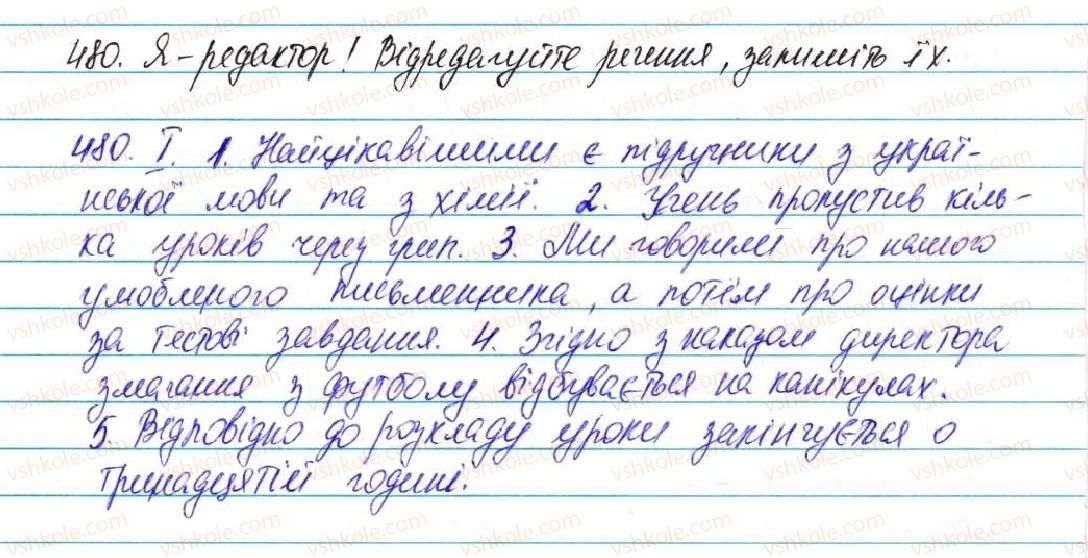 480. Я – редактор! Відредагуйте речення, запишіть їх.
480. І. 1. Найцікавішими є підручники з украї-
нської мови та з хімії. 2. Учень пропустив кіль-
ка уроків через грип. 3. Ми говорили про нашого
улюбленого письменника, а потім про оцінки
за тестові завдання. 4. Згідно з наказом директора
змагання з футболу відбувається на канікулах.
5. Відповідно до розкладу уроки закінчується о
тринадцятій годині.